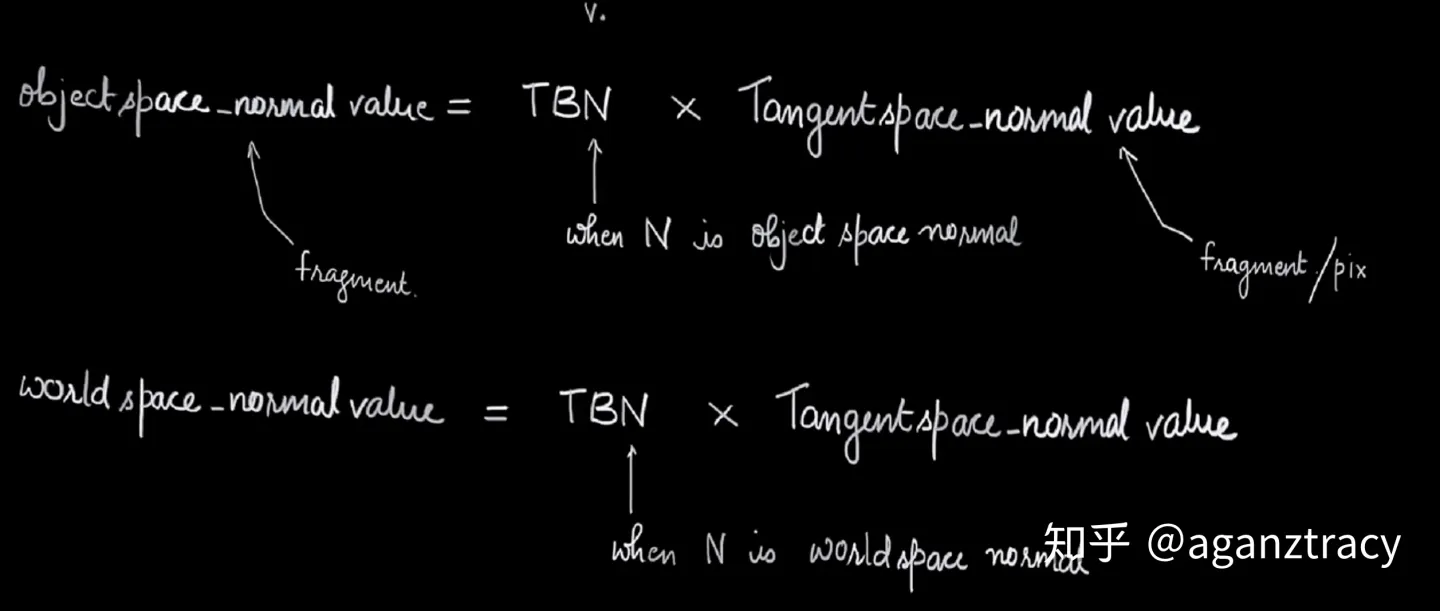 v.
object space_normal value = TBN × Tangent space_normal value
when N is object space normal
fragment.
fragment/pix
world space_normal value = TBN × Tangent space_normal value
when N is world space normal
知乎 @aganztracy